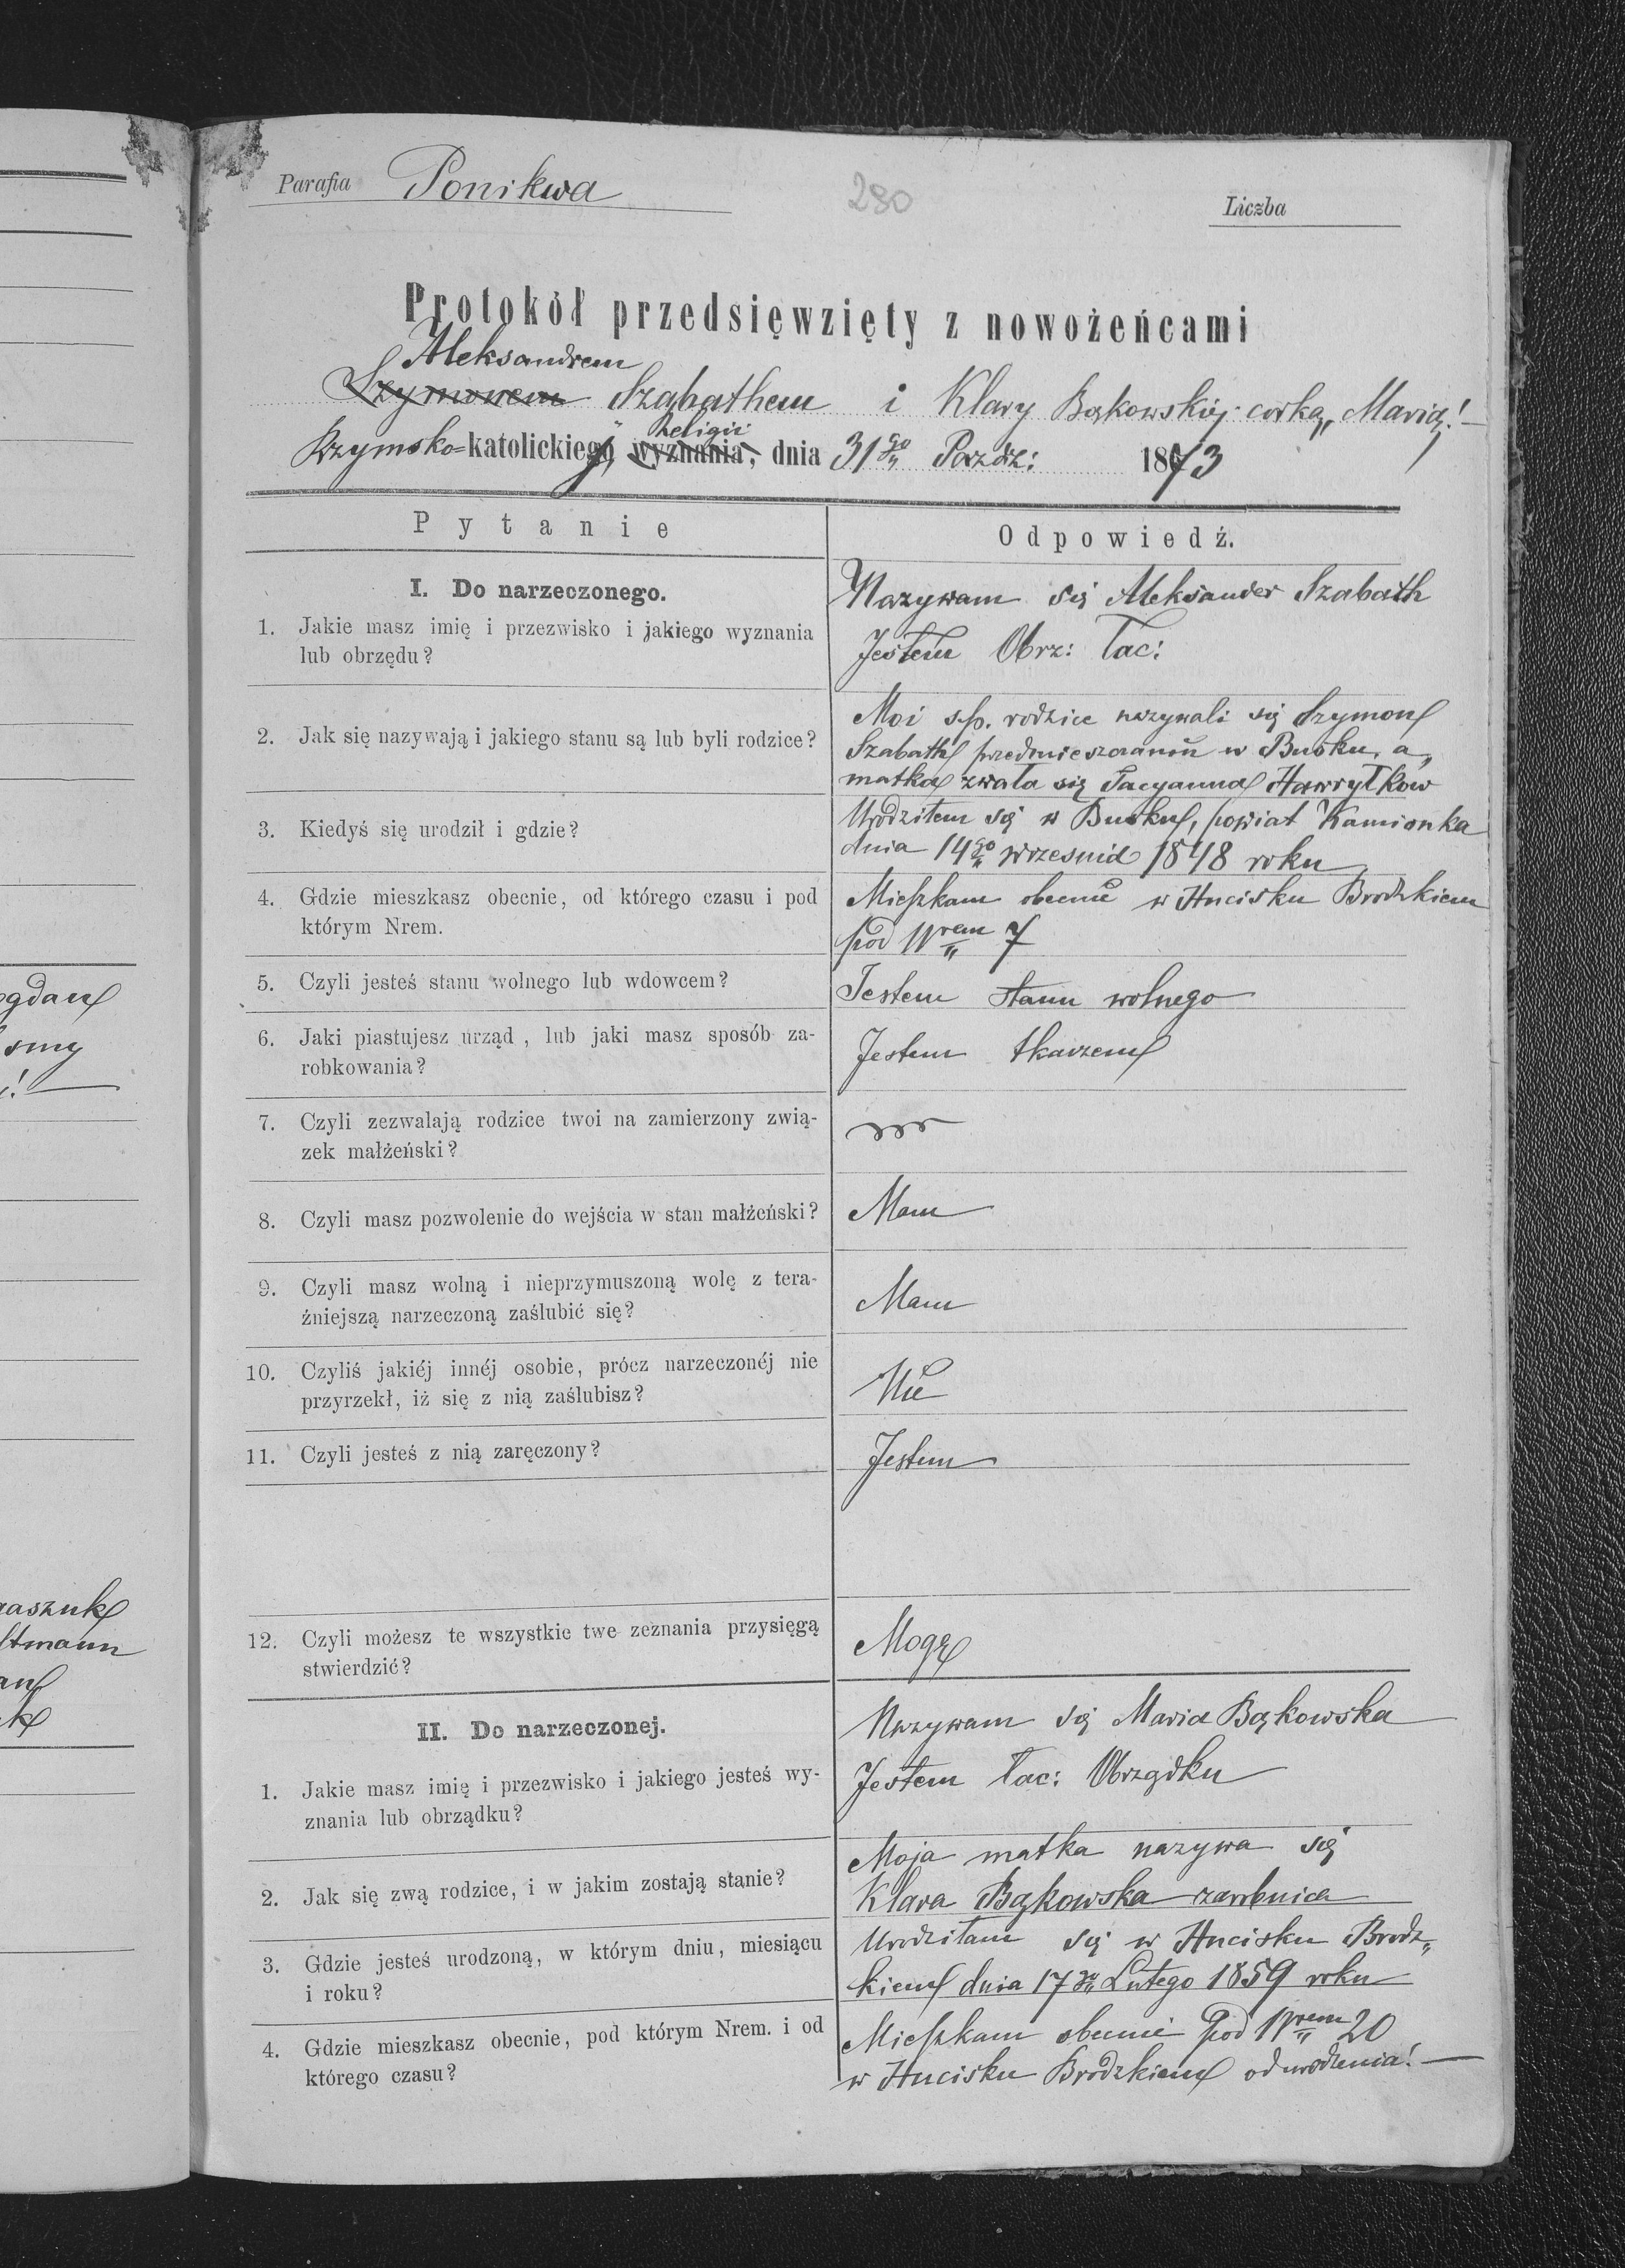 Parafia Ponikwa
280
Liczba
Protokół przedsięwzięty z nowożeńcami
Aleksandrem
Szymonem Szabathem i Klary Bąkowskiej corką, Marią! —
Religii
Rzymsko-katolickiego wyznania, dnia 31go Paźdz: 1873
Pytanie
Odpowiedź.
I. Do narzeczonego.
1. Jakie masz imię i przezwisko i jakiego wyznania
lub obrzędu?
Nazywam się Aleksander Szabath
Jestem Obrz: łac:
2. Jak się nazywają i jakiego stanu są lub byli rodzice?
Moi s.p. rodzice nazywali się Szymon
Szabath w Busku, a
matka zwała się Tacyanna Hawryłków
3. Kiedyś się urodził i gdzie?
Urodziłem się w Busku, powiat Kamionka
dnia 14go wrzesnia 1848 roku
4. Gdzie mieszkasz obecnie, od którego czasu i pod
którym Nrem.
Mieszkam obecnie w Hucisku Brodzkiem
pod Nrem 7
5. Czyli jesteś stanu wolnego lub wdowcem?
Jestem stanu wolnego
6. Jaki piastujesz urząd, lub jaki masz sposób za-
robkowania?
Jestem tkaczem
7. Czyli zezwalają rodzice twoi na zamierzony zwią-
zek małżeński?
8. Czyli masz pozwolenie do wejścia w stan małżeński?
Mam
9. Czyli masz wolną i nieprzymuszoną wolę z tera-
źniejszą narzeczoną zaślubić się?
Mam
10. Czyliś jakiéj innéj osobie, prócz narzeczonéj nie
przyrzekł, iż się z nią zaślubisz?
Nie
11. Czyli jesteś z nią zaręczony?
Jestem
12. Czyli możesz te wszystkie twe zeznania przysięgą
stwierdzić?
Mogę
II. Do narzeczonej.
1. Jakie masz imię i przezwisko i jakiego jesteś wy-
znania lub obrządku?
Nazywam się Maria Bąkowska
Jestem łac: Obrządku
2. Jak się zwą rodzice, i w jakim zostają stanie?
Moja matka nazywa się
Klara Bąkowska zarobnica
3. Gdzie jesteś urodzoną, w którym dniu, miesiącu
i roku?
Urodziłam się w Hucisku Brodz„
kiem dnia 17go Lutego 1859 roku
4. Gdzie mieszkasz obecnie, pod którym Nrem. i od
którego czasu?
Mieszkam obecnie pod Nrem 20
w Hucisku Brodzkiem od urodzenia! —
ogdan
aszuk